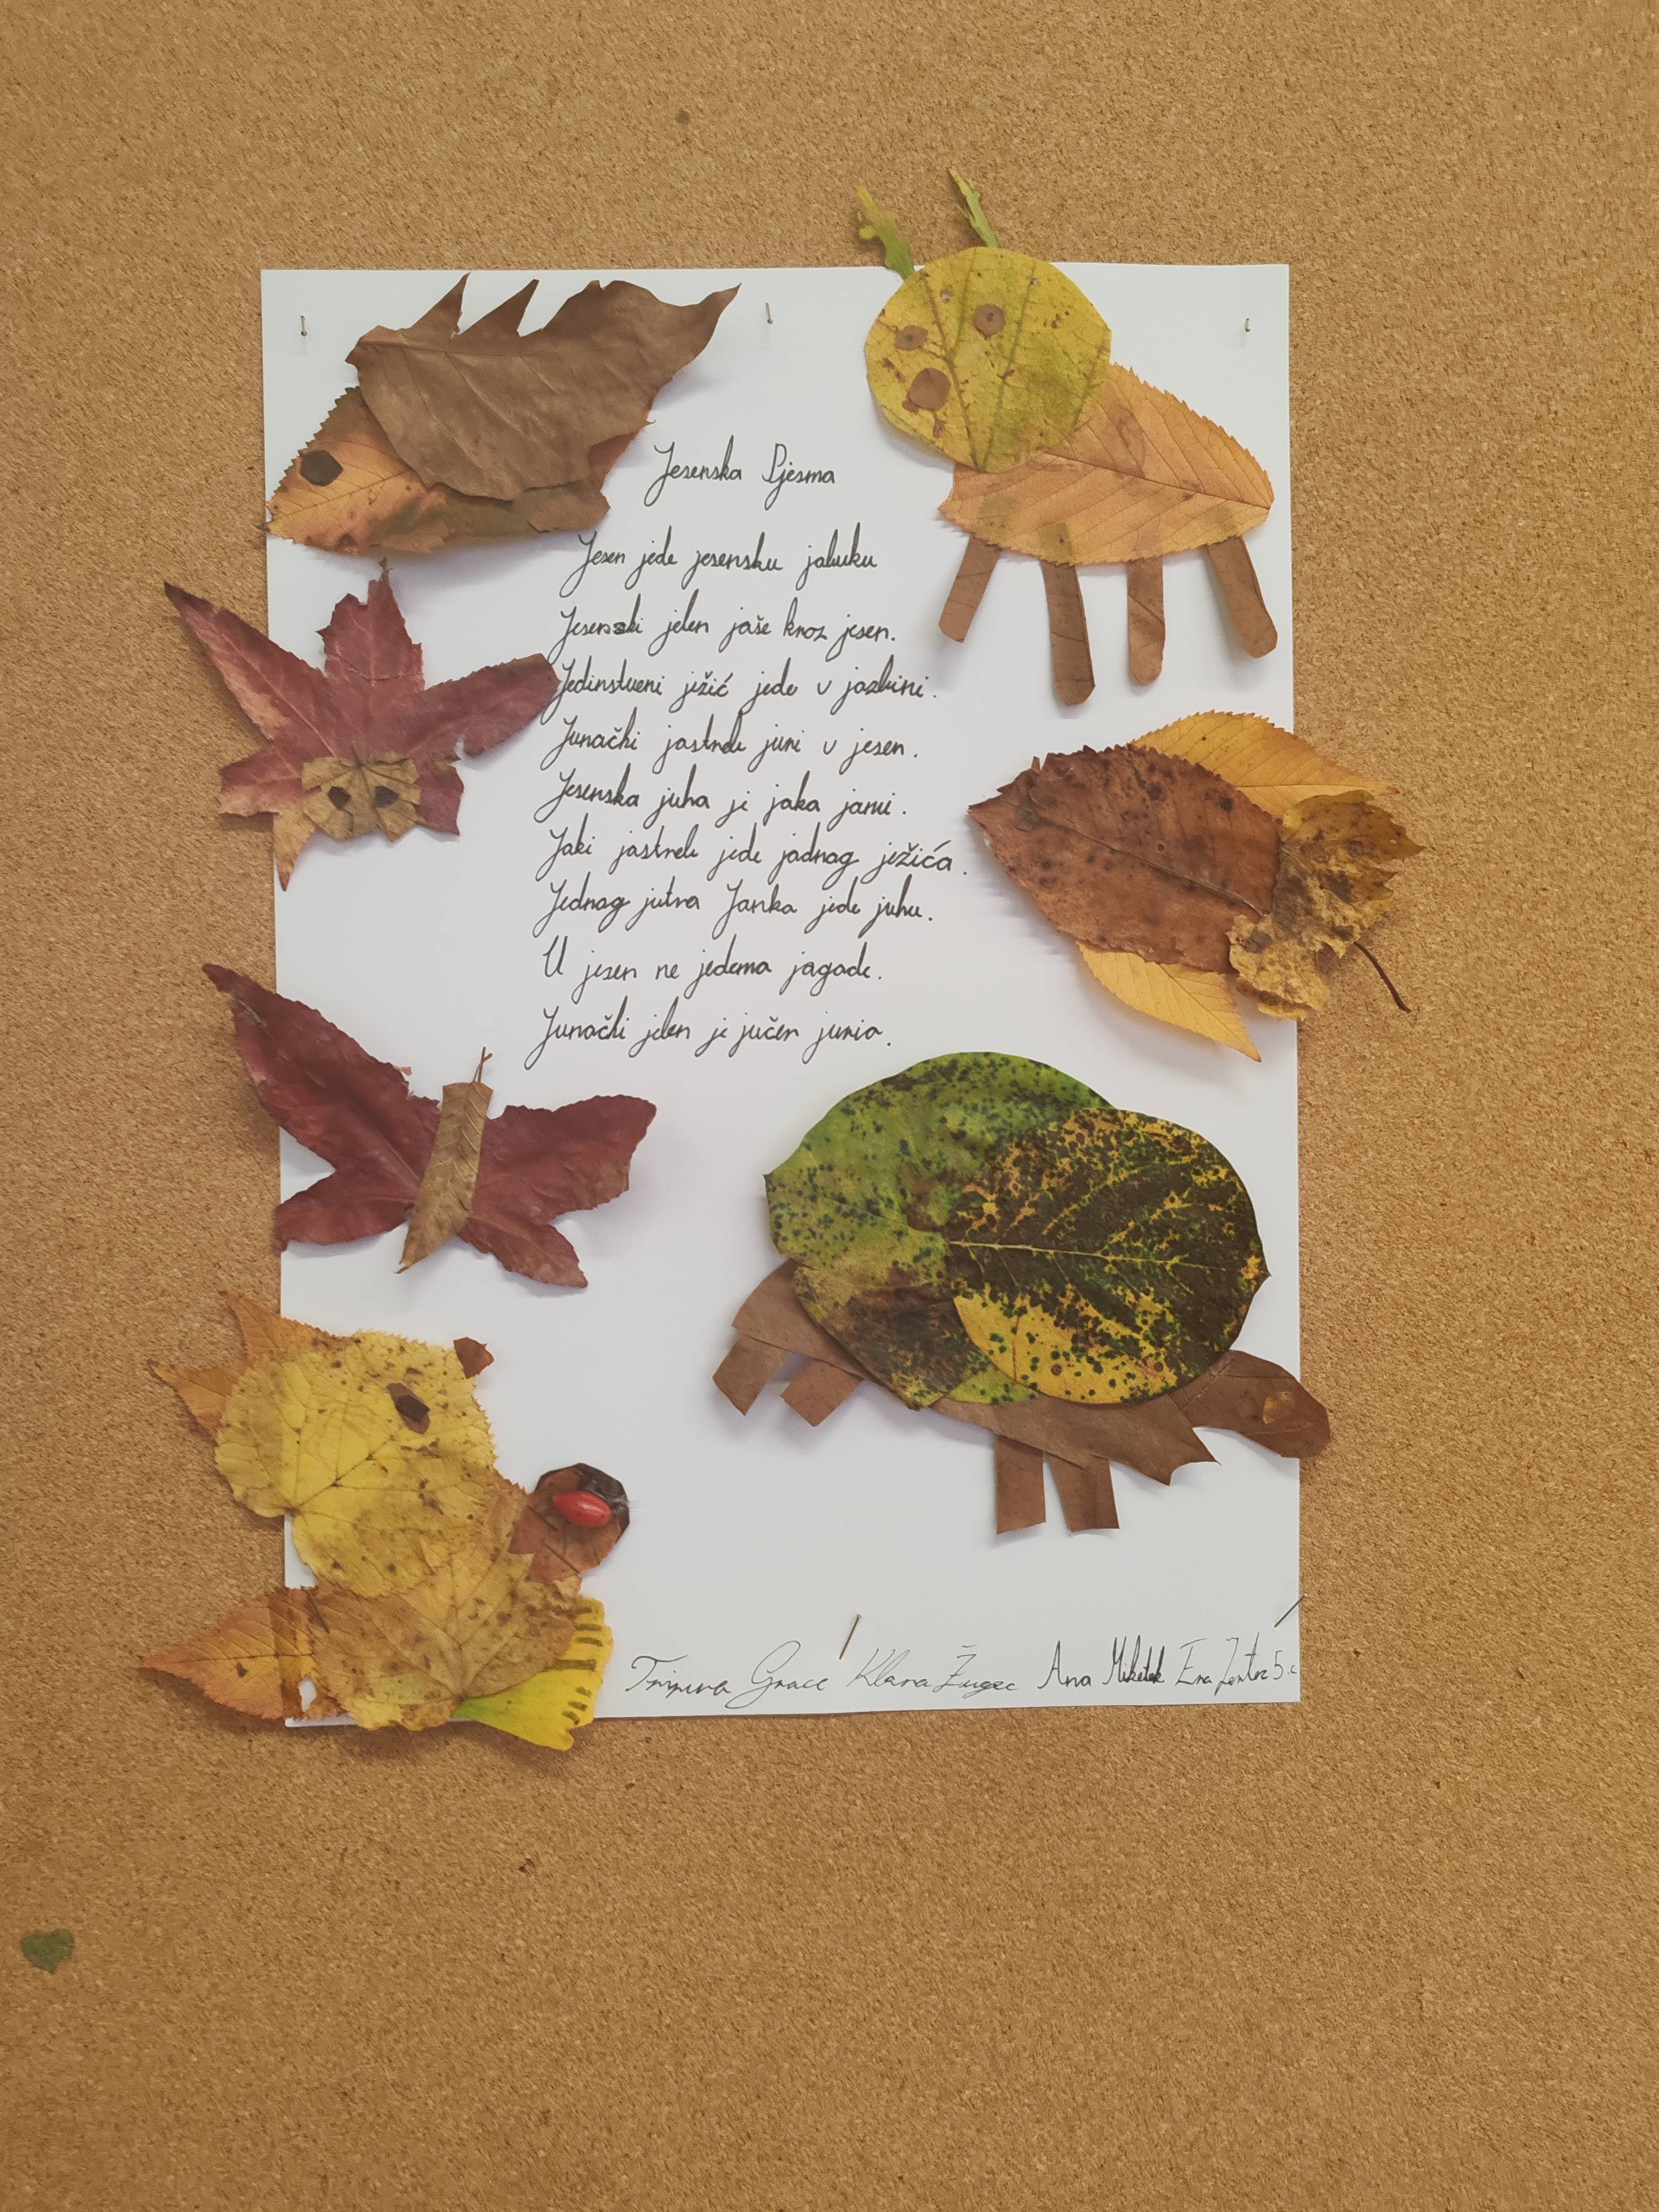 Jesenska Pjesma
Jesen jede jesensku jabuku
Jesenski jelen jaše kroz jesen.
Jedinstveni ježić jede u jazbini.
Junački jastreb juri u jesen.
Jesenska juha je jaka jami.
Jaki jastreb jede jadnog ježića.
Jednog jutra Janka jede juhu.
U jesen ne jedemo jagode.
Junački jelen je jučer jurio.
Grace Klara Žugec Ana Ena 5.c